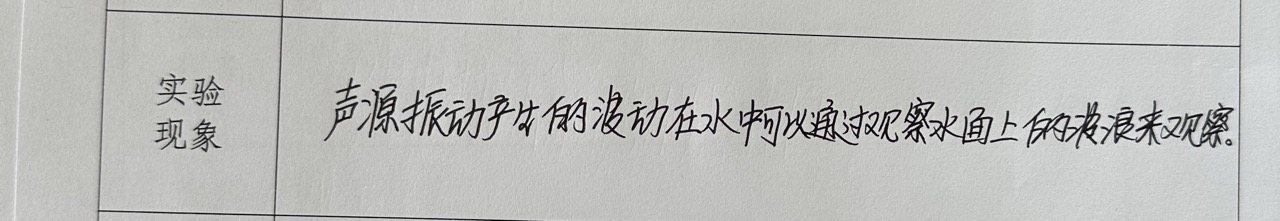 实验
现象
声源振动产生的波动在水中可以通过观察水面上的波浪来观察。